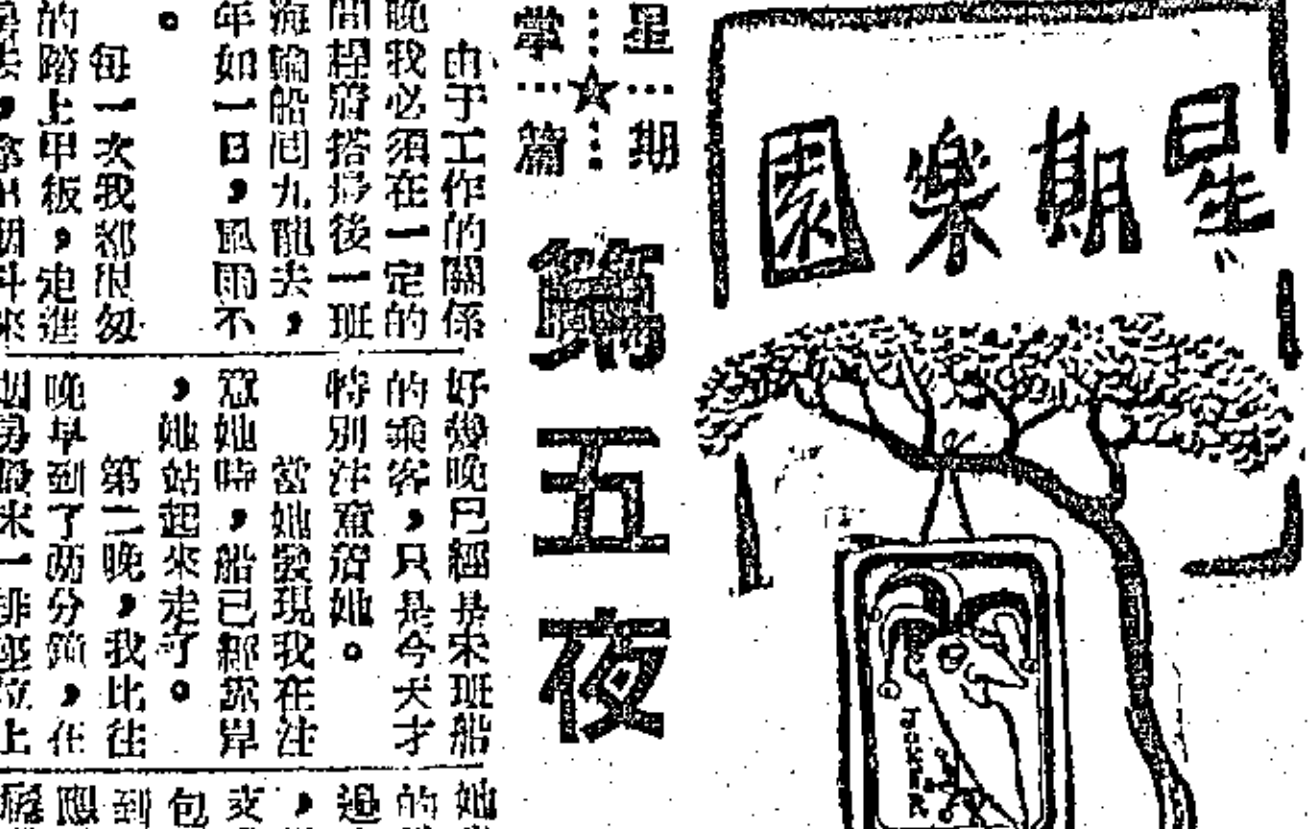 星期樂園
星期
掌篇
第五夜
由于工作的關係
晚我必須在一定的
間趕着搭最後一班
海輪船囘九龍去，
年如一日，風雨不
。
每一次我都很匆
的踏上甲板，走進
好幾晚已經是末班船
的乘客，只是今天才
特別注意着她。
當她發現我在注
意她時，船已經泊岸
，她站起來走了。
第二晚，我比往
晚早到了兩分鐘，在
末一排座位上
JOKER